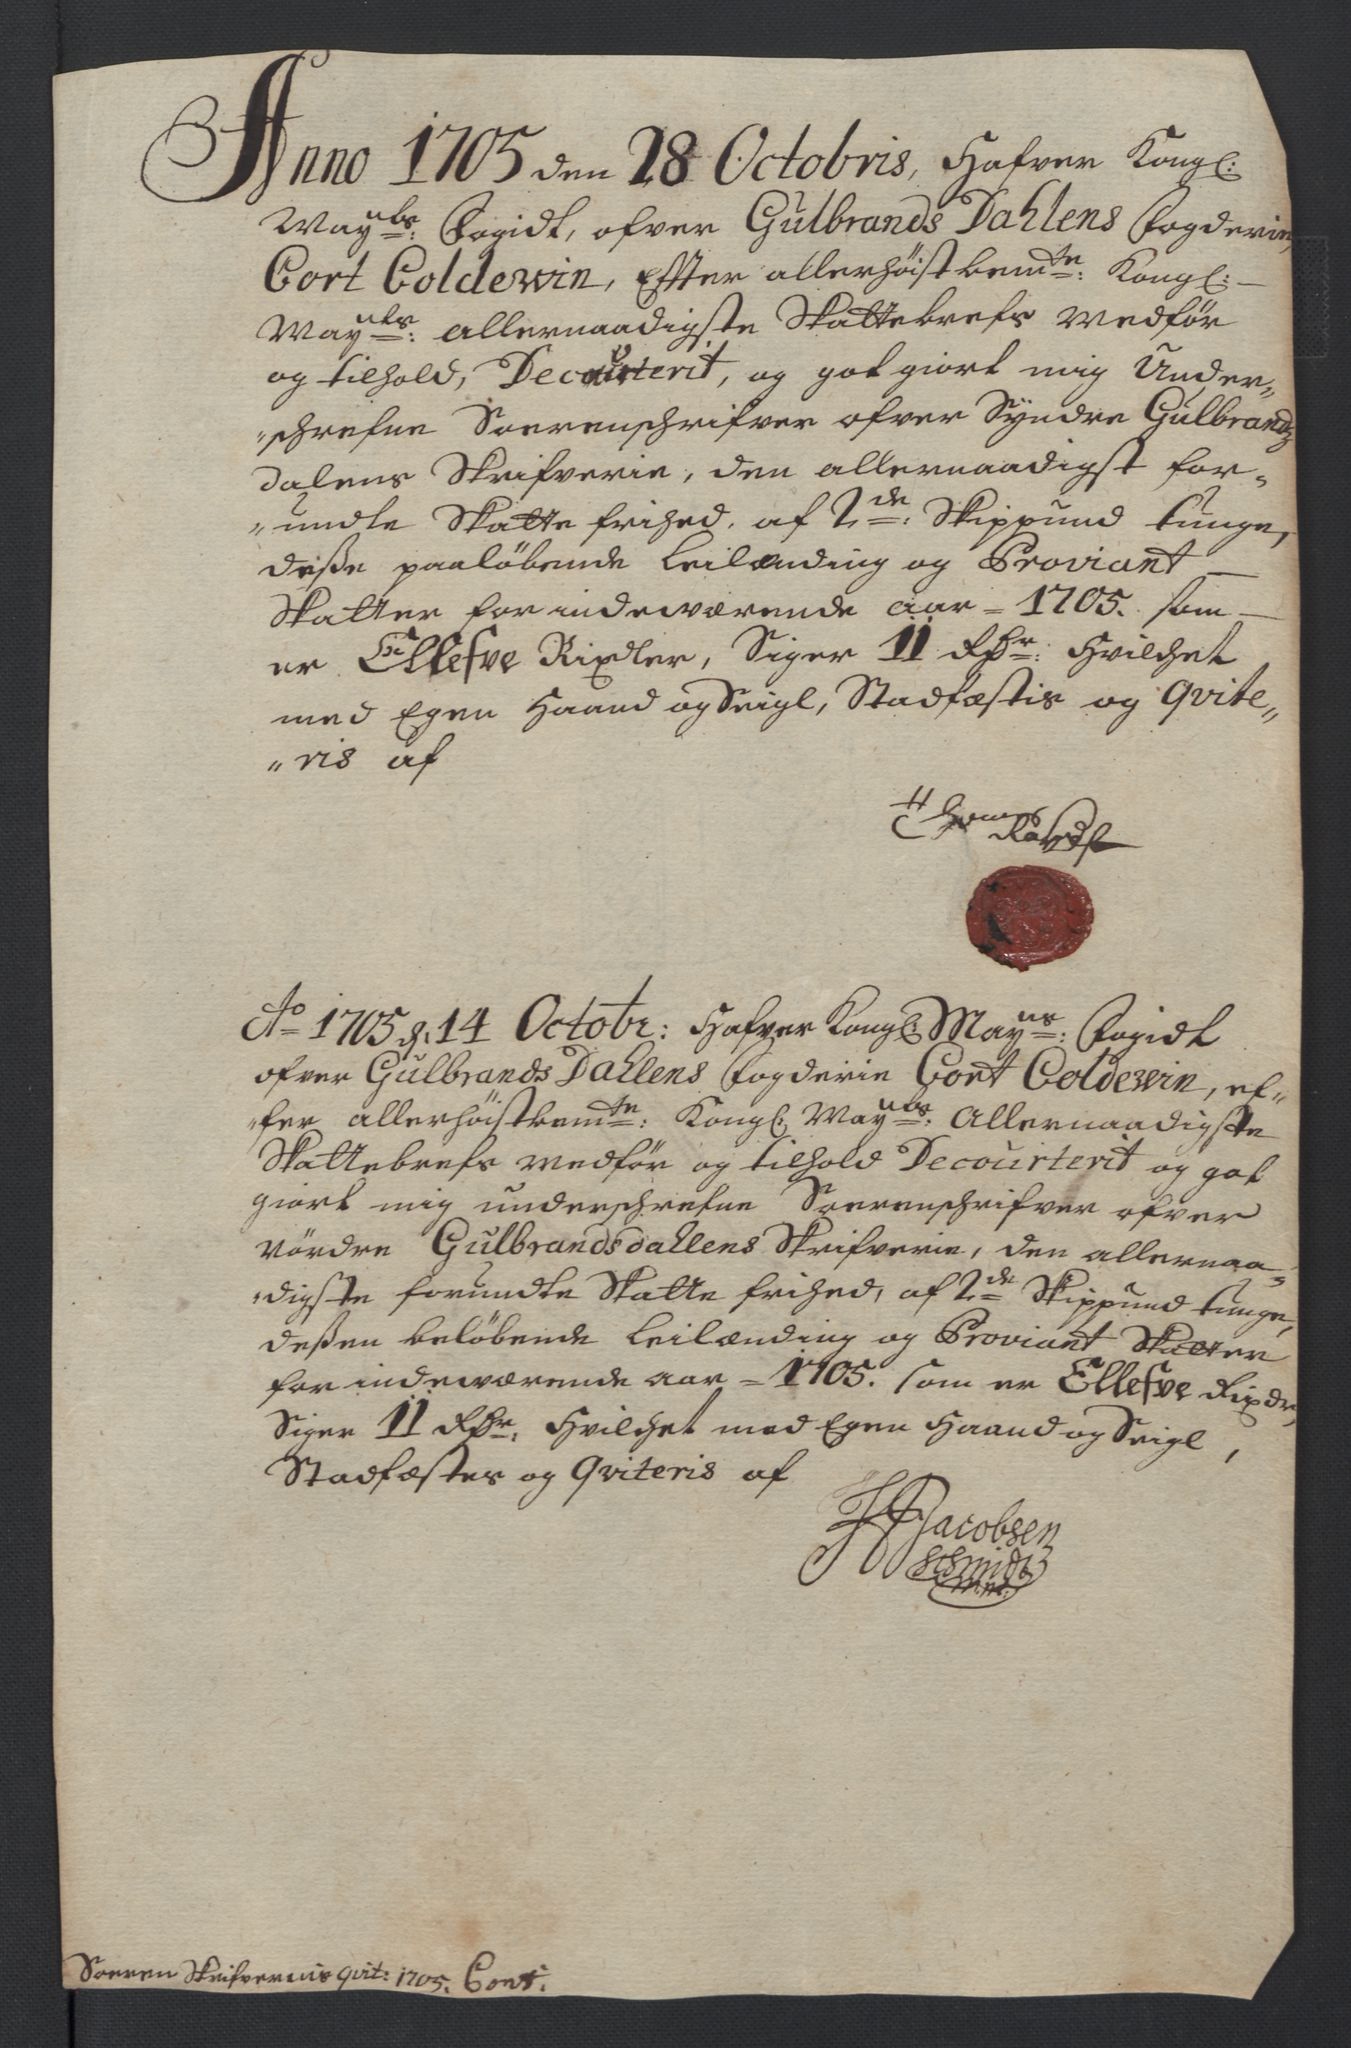 Anno 1705 den 28 Octobris, Hafver Kongl:
Mayts: Fogidt, ofver Gulbrands Dahlens Fogderie,
Cort Coldewin, Effter allerhöistbemte: Kongl:
Mayts: allernaadigste Skattebrefs Medför
og tilhold, Decourterit, og got giort mig Under-
schrefne Soerenschrifver ofver Syndre Gulbrandz
dalens Skrifverie, den allernaadigst for-
undte Skatte frihed, af 2de: Skippund tunge,
deße paaløbende Leilænding og Proviant
Skatter for indeværende aar - 1705. som
er Ellefve Rixdler, Siger 11 Rdr: Hvilchet
med Egen Haand og Seigl, Stadfæstis og Qvite-
ris af
Ao 1705 d: 14 Octobr: Hafver Kongl: Mayts: Fogidt
ofver Gulbrands Dahlens Fogderie Cort Coldewin, ef-
ter allerhöistbemte: Kongl: Mayts: Allernaadigste
Skattebrefs medför og tilhold Decourterit og got
giort mig underschrefne Soerenschrifver ofver
Nördre Gulbrandsdallens Skrifverie, den allernaa-
digste forundte Skatte frihed, af 2de Skippund tunge,
deßen beløbende Leilænding og Proviant Skatter
for indeværende aar - 1705. som er Ellefve Rixdr,
Siger 11 Rdr, Hvilchet med Egen Haand og Seigl,
Stadfæstes og Qviteris af
Jacobsen
Schmidt
m.m.
Soeren Skrifvernis qvit: 1705. Cont.